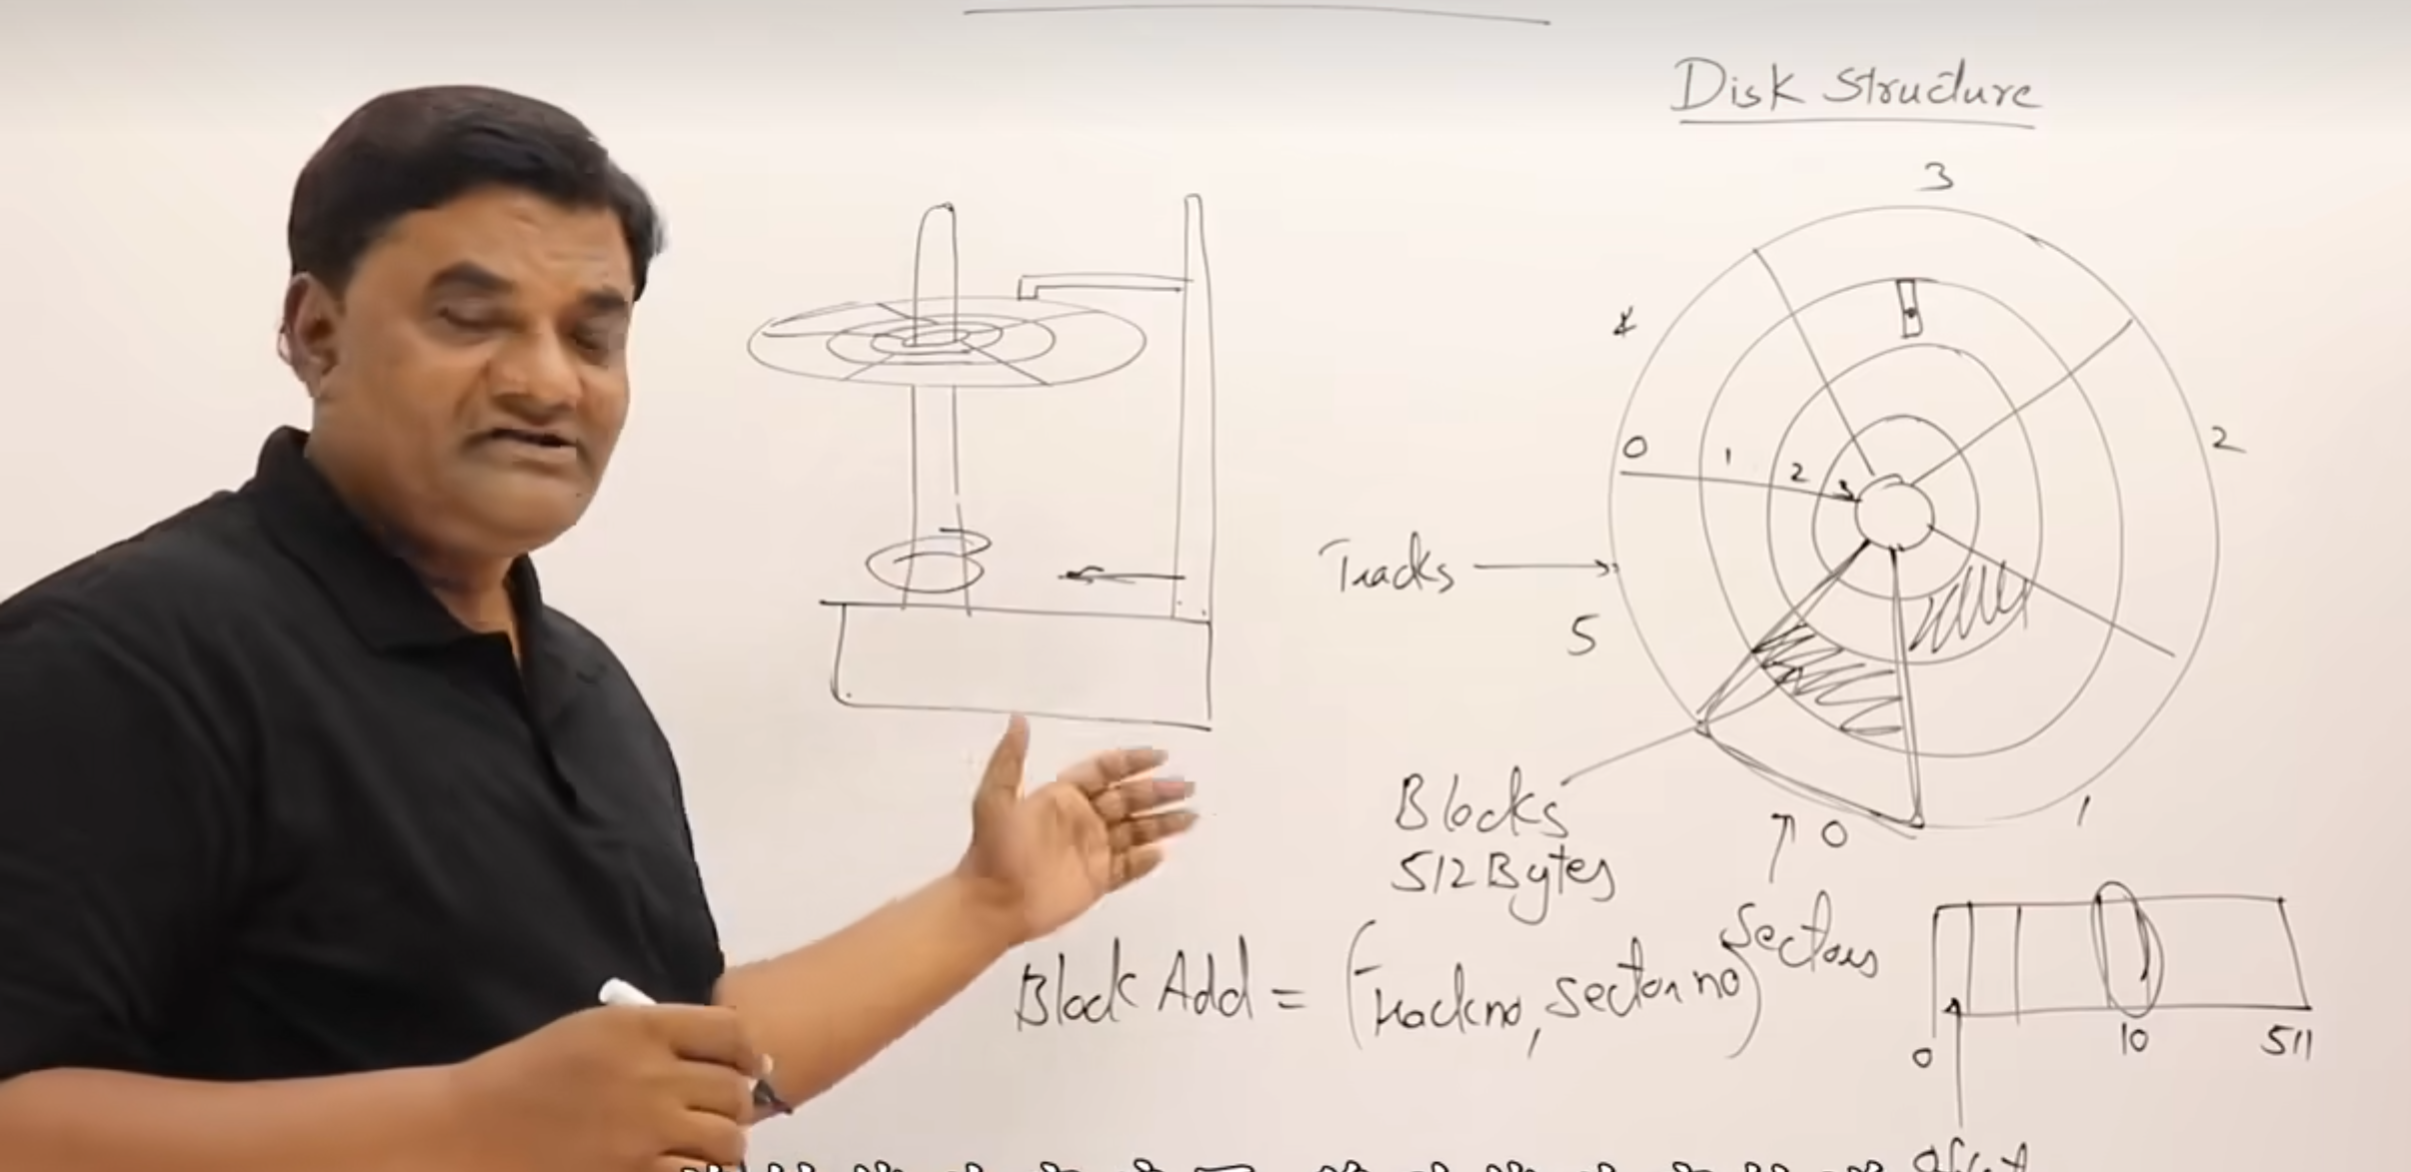 Disk Structure
3
4
2
0 1 2 3
Tracks
5
Blocks
512 Bytes
0
1
Sectors
Block Add = (Track no, Sector no)
0
10
511
offset